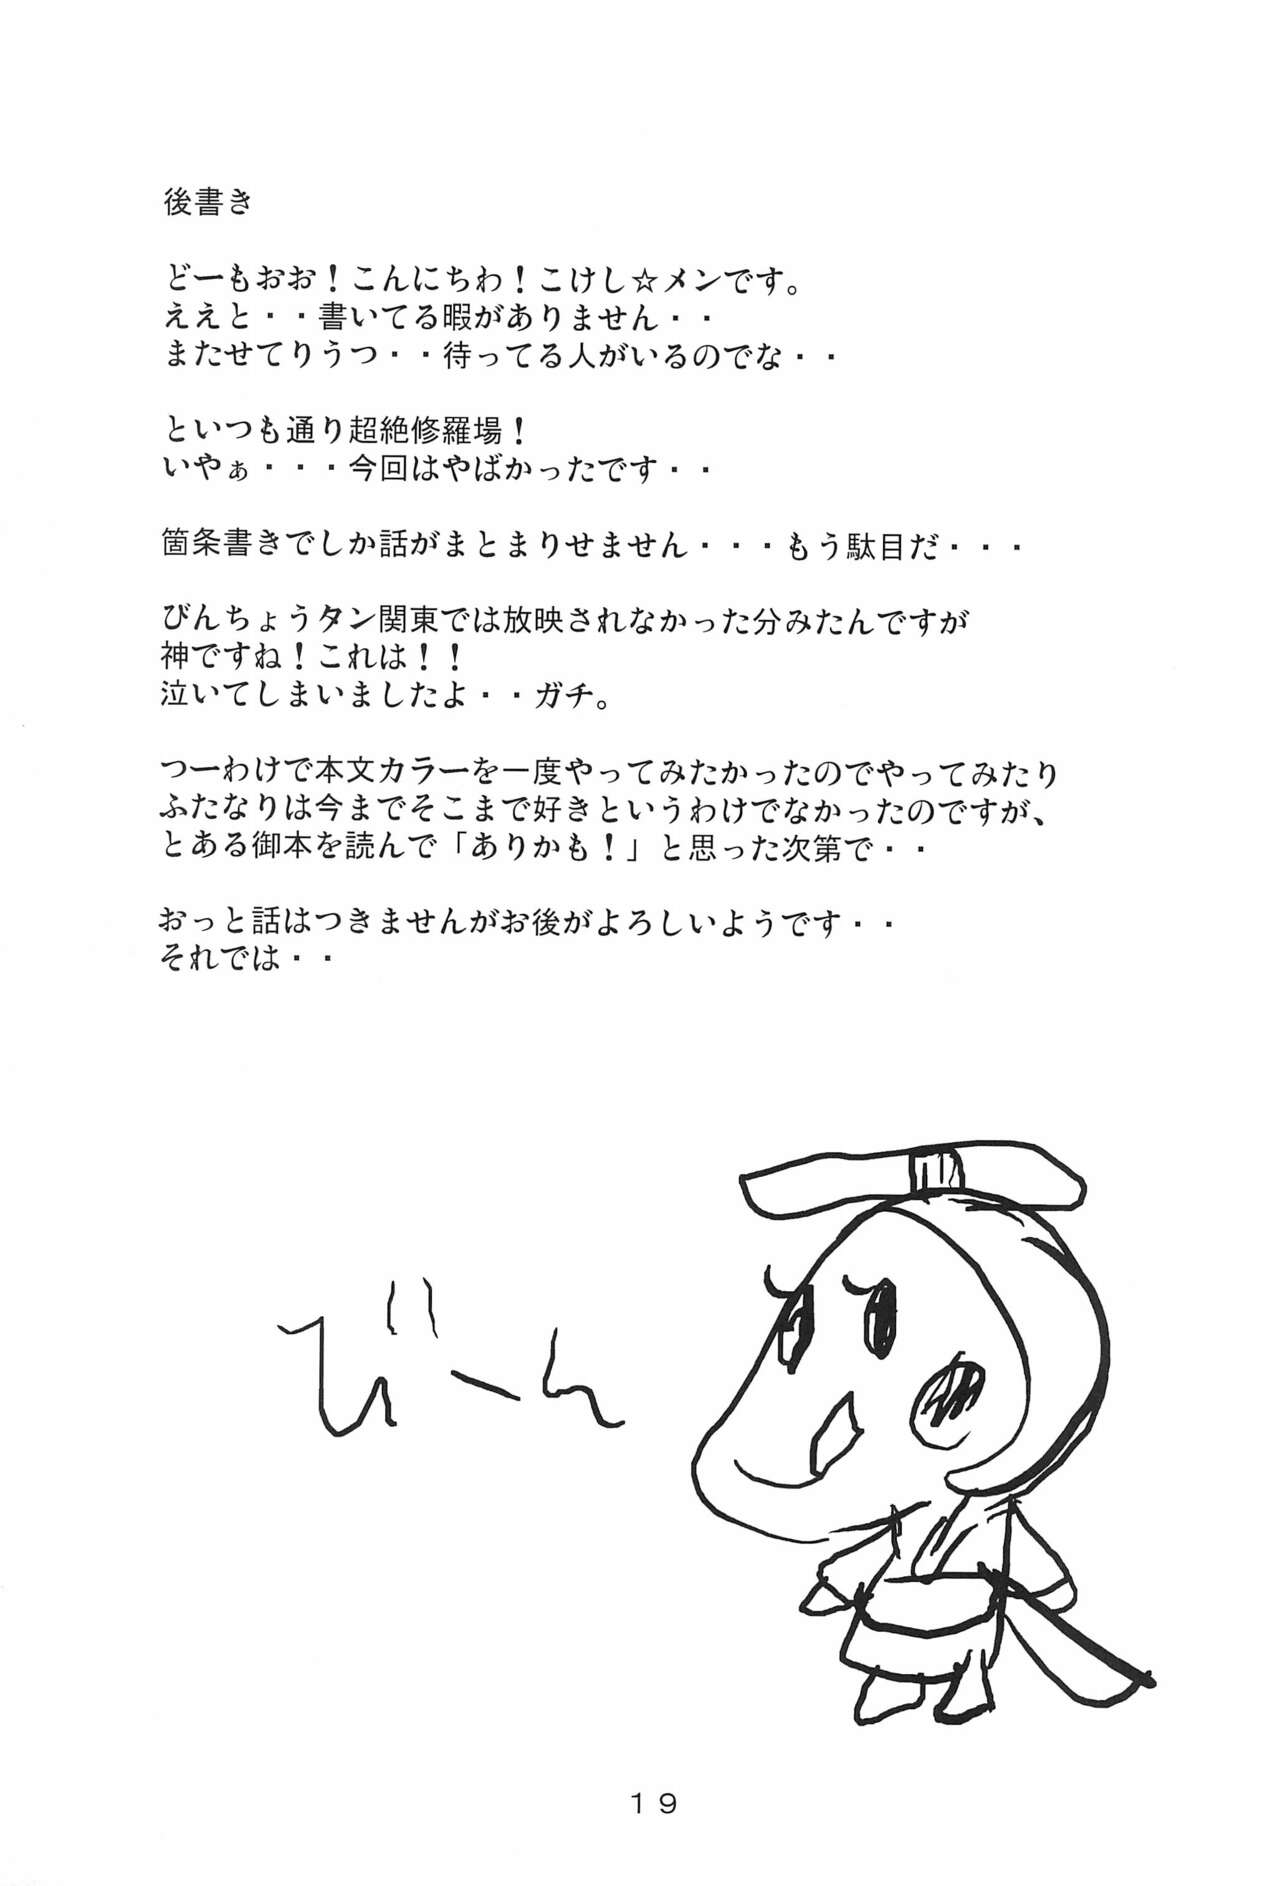 後書き
どーもおお！こんにちわ！こけし☆メンです。
ええと・・書いてる暇がありません・・
またせてりうつ・・待ってる人がいるのでな・・
といつも通り超絶修羅場！
いやぁ・・・今回はやばかったです・・
箇条書きでしか話がまとまりせません・・・もう駄目だ・・・
びんちょうタン関東では放映されなかった分みたんですが
神ですね！これは！！
泣いてしまいましたよ・・ガチ。
つーわけで本文カラーを一度やってみたかったのでやってみたり
ふたなりは今までそこまで好きというわけでなかったのですが、
とある御本を読んで「ありかも！」と思った次第で・・
おっと話はつきませんがお後がよろしいようです・・
それでは・・
びーん
１９